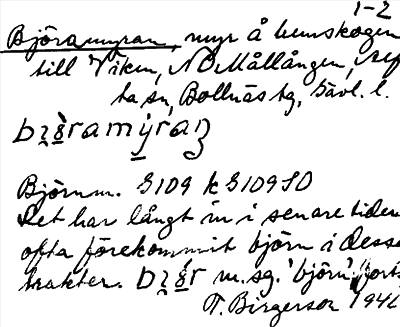 1-2
Björnmyran, myr å hemskogen
till Viken, NO Mållången, Alf
ta sn, Bollnäs tg, Gävl. l.
Björnm. G109 k G109 SO
Det har långt in i senare tiden
ofta förekommit björn i dessa
trakter. m. sg. 'björn'
T. Birgerson 194